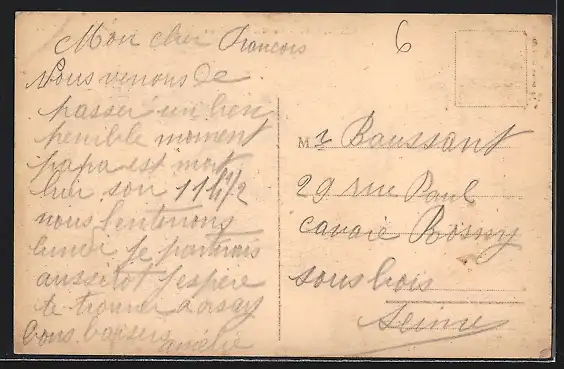 Mon cher Francois
Nous venons de
passer un bien
penible moment
papa est mort
hier soir 11h1/2
nous l'enterrons
lundi je partirais
aussitot j'espere
te trouver a orsay
Bons baisers
amelie
6
Mr Baussant
29 rue Paul
cavaie Rosny
sous bois
Seine